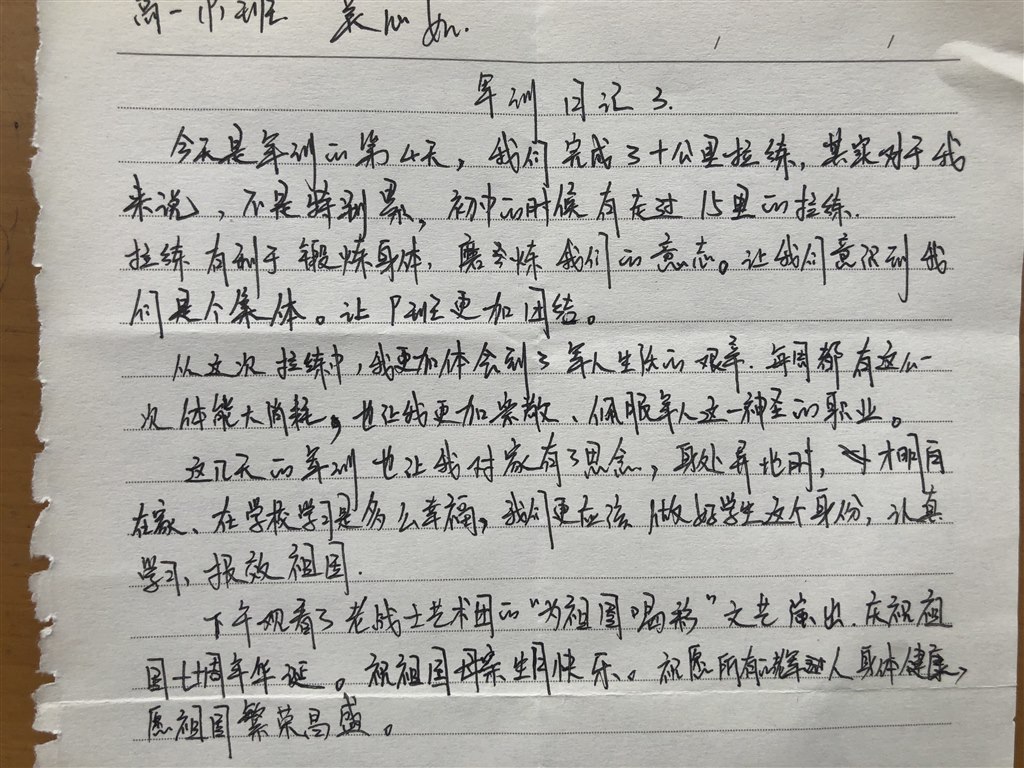 高一 班
军训日记3.
今天是军训的第4天，我们完成了十公里拉练，其实对于我
来说，不是特别累，初中的时候有走过15里的拉练.
拉练有利于锻炼身体，磨炼我们的意志。让我们意识到我
们是个集体。让P班更加团结。
从这次拉练中，我更加体会到了军人生活的艰辛.每周都有这么一
次体能大消耗，也让我更加崇敬、佩服军人这一神圣的职业。
这几天的军训也让我对家有了思念，身处异地时，才明白
在家、在学校学习是多么幸福，我们更应该做好学生这个身份，认真
学习，报效祖国.
下午观看了老战士艺术团的“为祖国喝彩”文艺演出.庆祝祖
国七十周年华诞。祝祖国母亲生日快乐。祝愿所有的军人身体健康，
愿祖国繁荣昌盛。